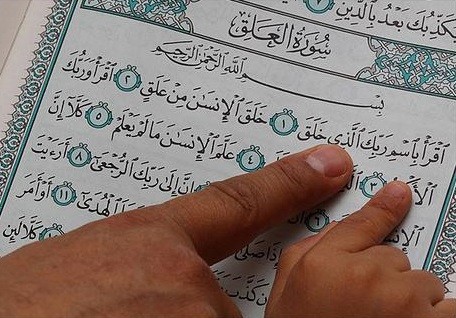 يُكَذِّبُكَ بَعْدُ بِٱلدِّينِ ٧
سُورَةُ ٱلْعَلَقِ
بِسْمِ ٱللَّهِ ٱلرَّحْمَٰنِ ٱلرَّحِيمِ
ٱقْرَأْ بِٱسْمِ رَبِّكَ ٱلَّذِى خَلَقَ ١ خَلَقَ ٱلْإِنسَٰنَ مِنْ عَلَقٍ ٢ ٱقْرَأْ وَرَبُّكَ
٣ ٤ عَلَّمَ ٱلْإِنسَٰنَ مَا لَمْ يَعْلَمْ ٥ كَلَّآ إِنَّ
إِنَّ إِلَىٰ رَبِّكَ ٱلرُّجْعَىٰٓ ٨ أَرَءَيْتَ
إِذَا صَلَّىٰٓ ٱلْهُدَىٰٓ ١١ أَوْ أَمَرَ
كَذَّبَ كَلَّا لَئِن